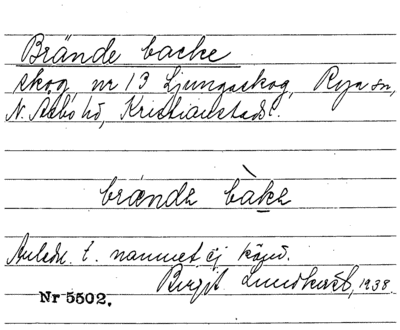 Brände backe
skog, nr 13 Ljungaskog, Rya sn,
N. Åsbo hd, Kristianstads l.
brända bàka
Anledn. t. namnet ej känd.
Birgit Lundkvist, 1938.
Nr 5502.